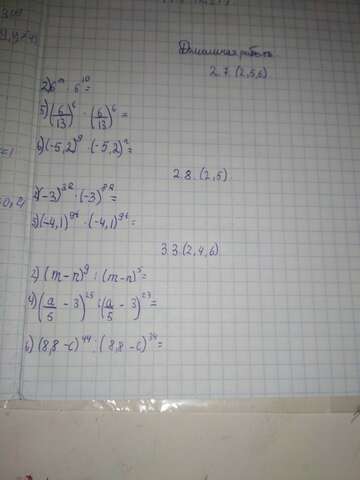 Домашняя работа
2.7.(2,5,6)
5) (6/13)^6 · (6/13)^6 =
6) (-5,2)^9 · (-5,2)^n =
2.8.(2,5)
(-3)^32 · (-3)^32 =
(-4,1)^94 · (-4,1)^94 =
3.3.(2,4,6)
2) (m-n)^9 : (m-n)^5 =
4) (a/5 - 3)^25 : (a/5 - 3)^23 =
6) (8,8-c)^44 : (8,8-c)^34 =